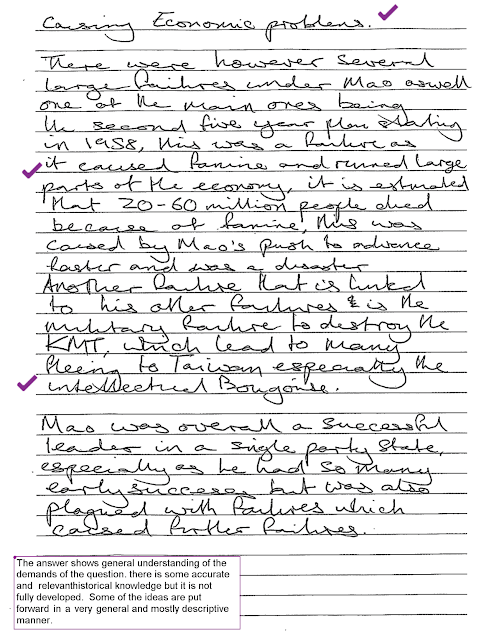 Causing Economic problems.
There were however several
large failures under Mao aswell
one of the main ones being
the second five year plan stating
in 1958, this was a failure as
it caused famine and ruined large
parts of the economy, it is estimated
that 20-60 million people died
because of famine, this was
caused by Mao's push to advance
faster and was a disaster
Another failure that is linked
to his other failures & is the
military failure to destroy the
KMT, which lead to many
fleeing to Taiwan especially the
intellectual Bougoise.
Mao was overall a successful
leader in a single party state,
especially as he had so many
early successes but was also
plagued with failures which
caused further failures.
The answer shows general understanding of the
demands of the question. there is some accurate
and relevanthistorical knowledge but it is not
fully developed. Some of the ideas are put
forward in a very general and mostly descriptive
manner.